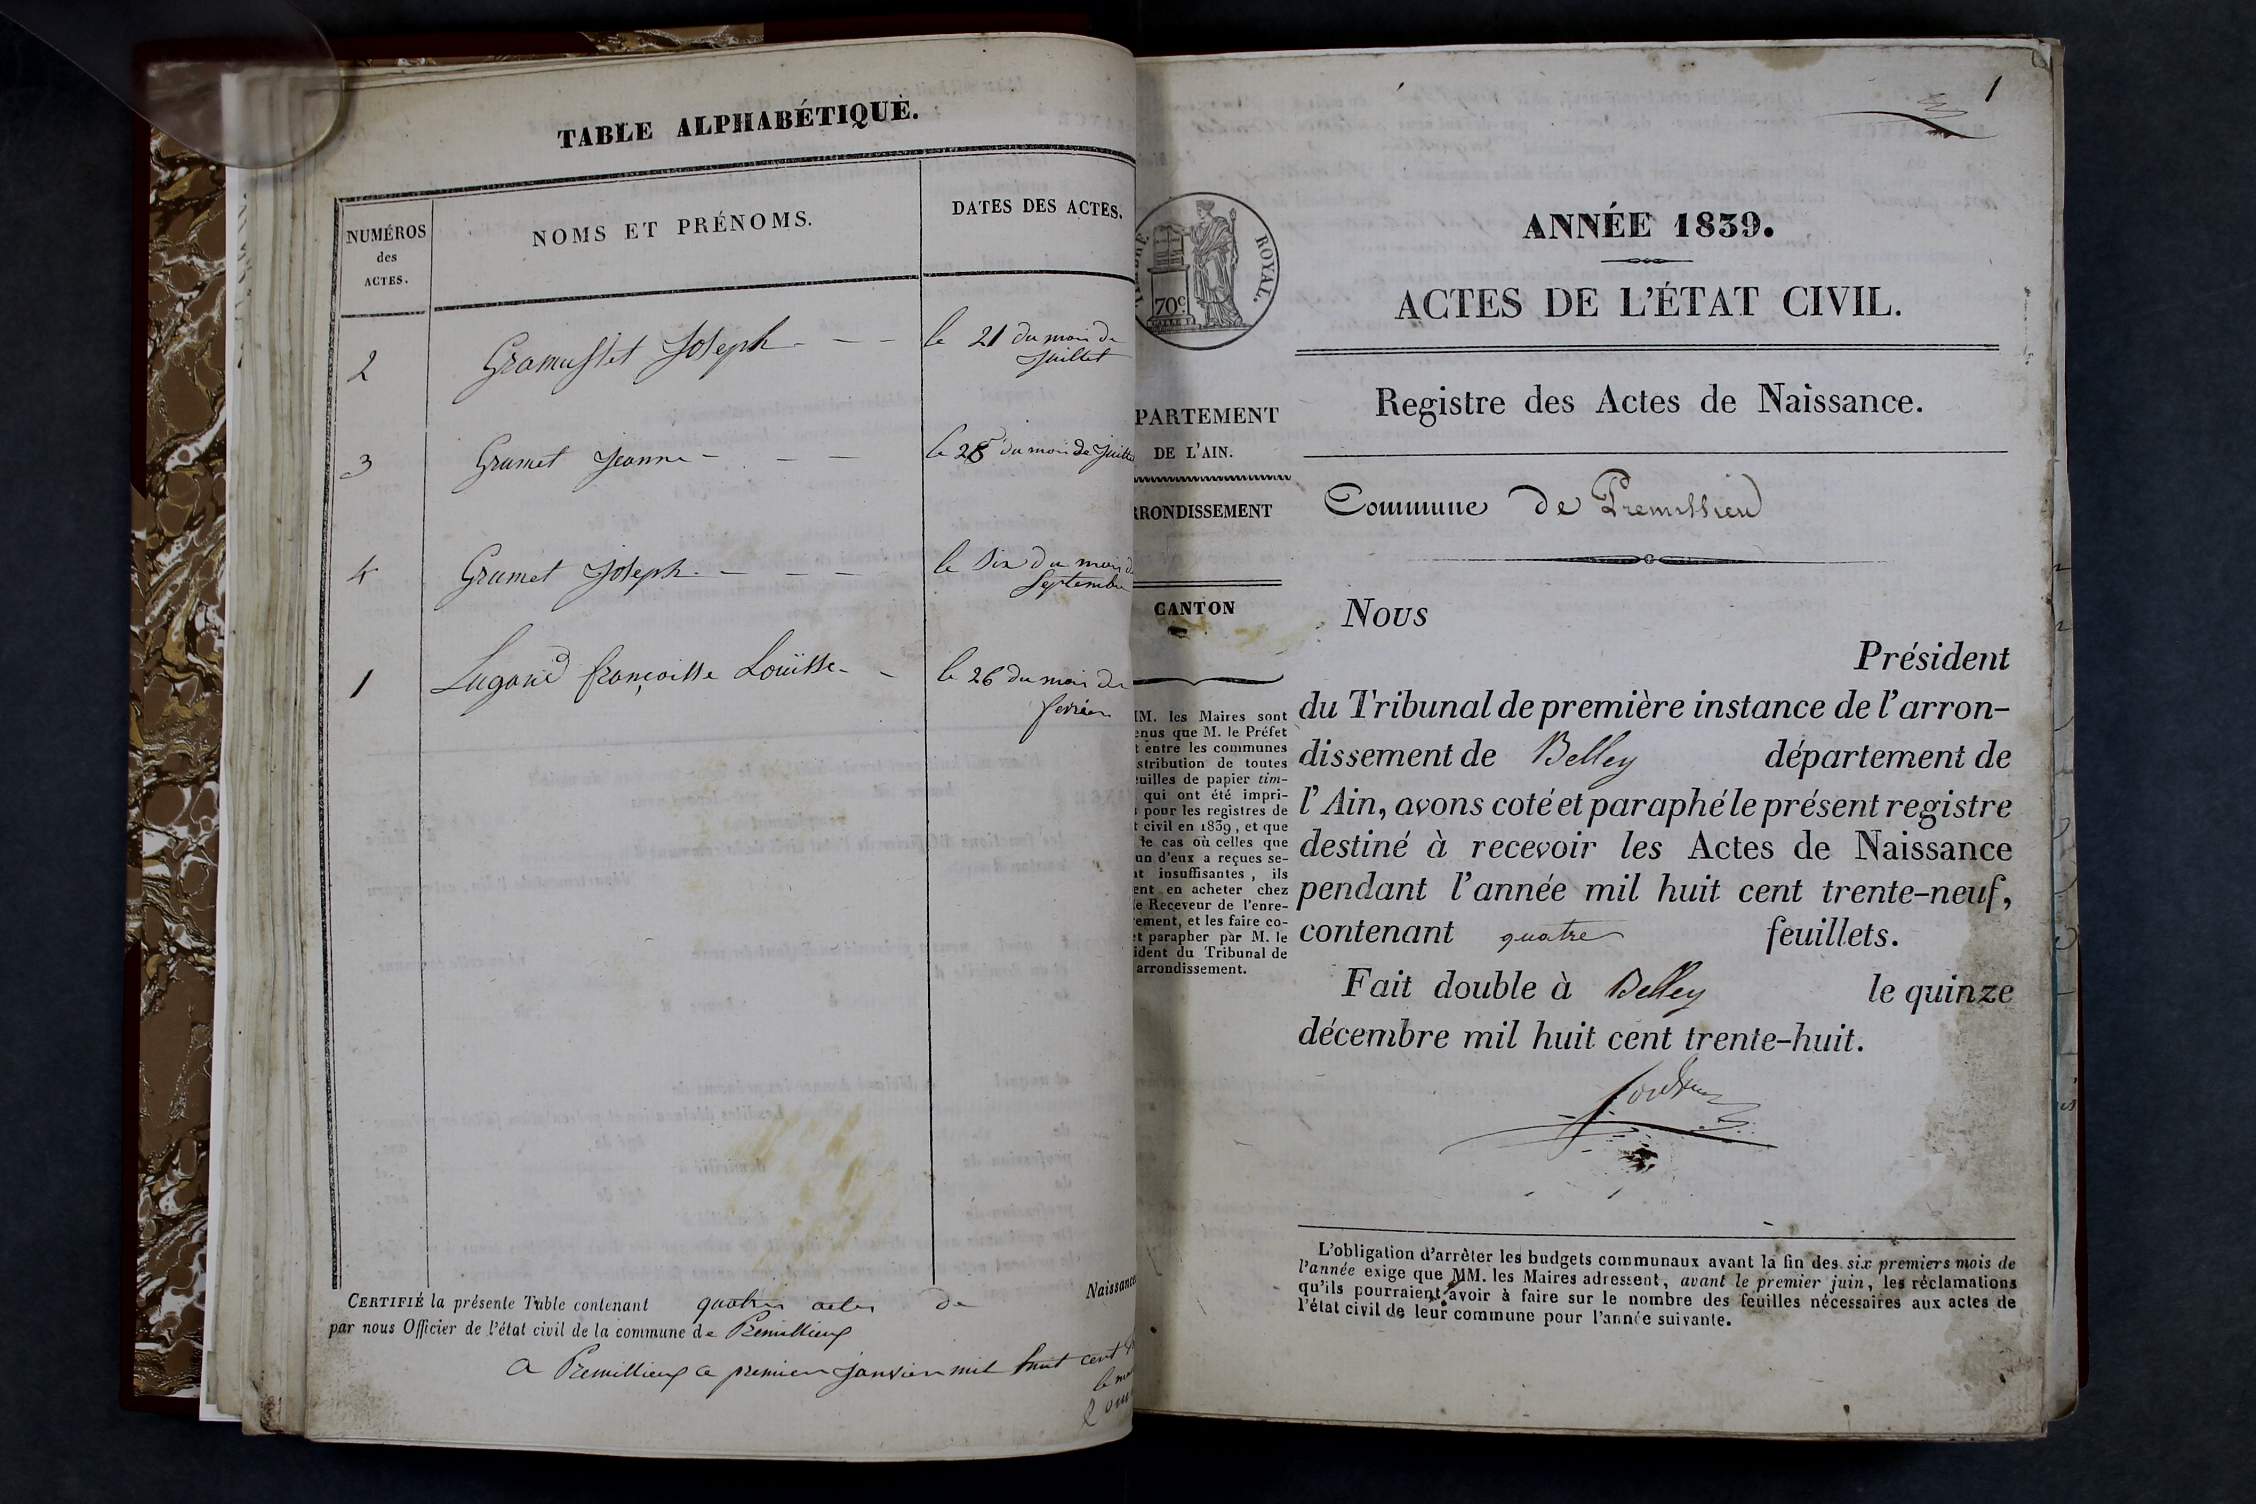 TABLE ALPHABÉTIQUE.
NUMÉROS
des
ACTES.
NOMS ET PRÉNOMS.
DATES DES ACTES.
2 Gramusset Joseph - - - le 21 du mois de
Juillet
3 Grumet Jeanne - - - le 28 du mois de Juillet
4 Grumet Joseph. - - - le Six du mois de
Septembre
1 Lugand françoisse Louïsse - - le 26 du mois de
fevrier
CERTIFIÉ la présente Table contenant quatre actes de Naissance
par nous Officier de l'état civil de la commune de Premillieux
a Premillieux ce premier janvier mil huit cent
1
ROYAL.
70c
ANNÉE 1839.
ACTES DE L'ÉTAT CIVIL.
Registre des Actes de Naissance.
PARTEMENT
DE L'AIN.
RRONDISSEMENT
CANTON
Commune de Premillieu
Nous
Président
du Tribunal de première instance de l'arron-
dissement de Belley département de
l'Ain, avons coté et paraphé le présent registre
destiné à recevoir les Actes de Naissance
pendant l'année mil huit cent trente-neuf,
contenant quatre feuillets.
Fait double à Belley le quinze
décembre mil huit cent trente-huit.
MM. les Maires sont
enus que M. le Préfet
t entre les communes
stribution de toutes
euilles de papier tim-
qui ont été impri-
pour les registres de
t civil en 1839, et que
le cas où celles que
un d'eux a reçues se-
nt insuffisantes, ils
ent en acheter chez
le Receveur de l'enre-
ement, et les faire co-
et parapher par M. le
ident du Tribunal de
arrondissement.
L'obligation d'arrêter les budgets communaux avant la fin des six premiers mois de
l'année exige que MM. les Maires adressent, avant le premier juin, les réclamations
qu'ils pourraient avoir à faire sur le nombre des feuilles nécessaires aux actes de
l'état civil de leur commune pour l'année suivante.